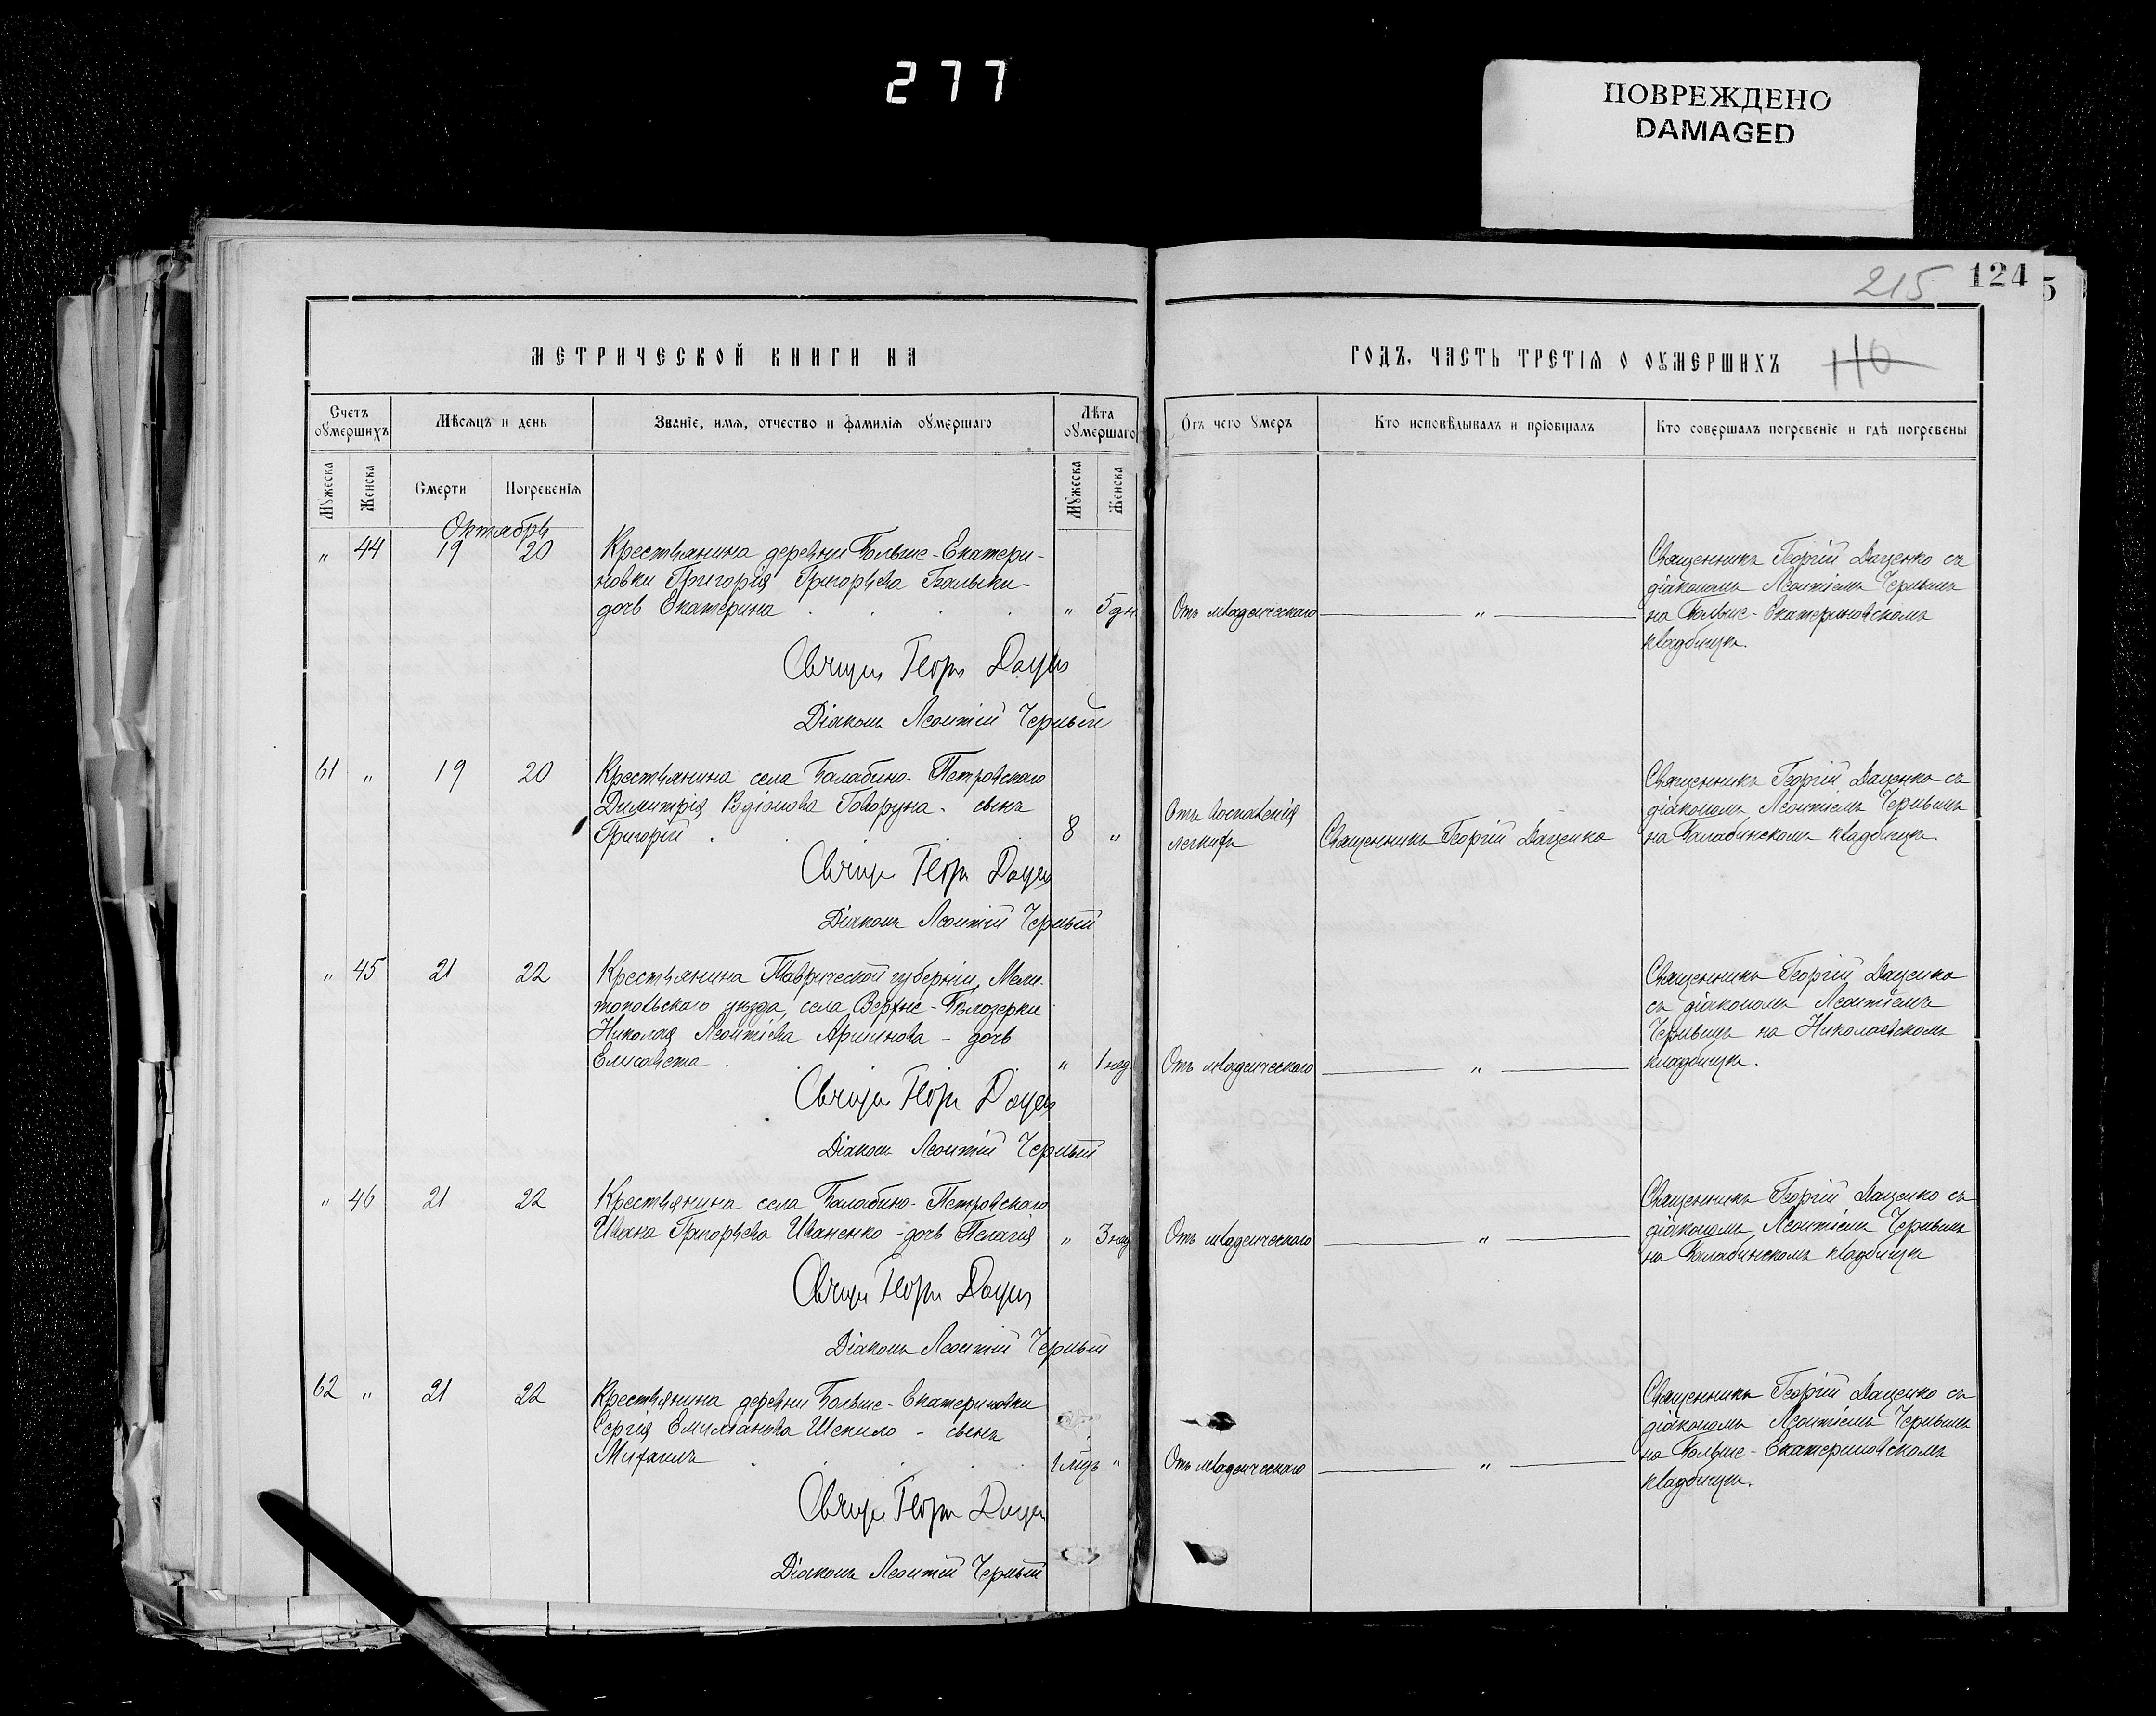 277
ПОВРЕЖДЕНО
DAMAGED
215 124
5
МЕТРИЧЕСКОЙ КНИГИ НА
ГОДЪ, ЧАСТЬ ТРЕТІѦ О ОУМЕРШИХЪ 110
Счетъ оумершихъ
Мѣсѧцъ и день
Званіе, имѧ, отчество и фамиліѧ оумершаго
Лѣта оумершаго
Ѿтъ чего умеръ
Кто исповѣдывалъ и пріобщалъ
Кто совершалъ погребеніе и гдѣ погребены
Мужеска
Женска
Смерти
Погребеніѧ
Мужеска
Женска
Октябрь
„ 44 19 20 Крестьянина деревни Больше-Екатери-
новки Григорія Григорьева Балыки-
дочь Екатерина „ 5 дн. Отъ младенческаго „
Священникъ Георгій Даценко съ
діакономъ Леонтіемъ Чернымъ
на Больше-Екатериновскомъ
кладбищѣ.
Священ Георг Даценко
Діаконъ Леонтій Черный
61 „ 19 20 Крестьянина села Балабино-Петровскаго
Димитрія Говоруна - сынъ
Григорій 8 „
Отъ воспаленія
легкихъ
Священникъ Георгій Даценко
Священникъ Георгій Даценко съ
діакономъ Леонтіемъ Чернымъ
на Балабинскомъ кладбищѣ.
Священ Георг Даценко
Діаконъ Леонтій Черный
„ 45 21 22 Крестьянина Таврической губерніи, Мели-
топольскаго уѣзда, села Верхне-Бѣлозерки
Николая Леонтіева Аршинова - дочь
Елисавета „ 1 нед. Отъ младенческаго „
Священникъ Георгій Даценко
съ діакономъ Леонтіемъ
Чернымъ на Николаевскомъ
кладбищѣ.
Священ Георг Даценко
Діаконъ Леонтій Черный
„ 46 21 22 Крестьянина села Балабино-Петровскаго
Ивана Григорьева Иваненко - дочь Пелагія „ 3 нед. Отъ младенческаго „
Священникъ Георгій Даценко съ
діакономъ Леонтіемъ Чернымъ
на Балабинскомъ кладбищѣ
Священ Георг Даценко
Діаконъ Леонтій Черный
62 „ 21 22 Крестьянина деревни Больше-Екатериновки
Сергія Емиліанова Шепило - сынъ
Михаилъ 1 мцъ „ Отъ младенческаго „
Священникъ Георгій Даценко съ
діакономъ Леонтіемъ Чернымъ
на Больше-Екатериновскомъ
кладбищѣ.
Священ Георг Даценко
Діаконъ Леонтій Черный